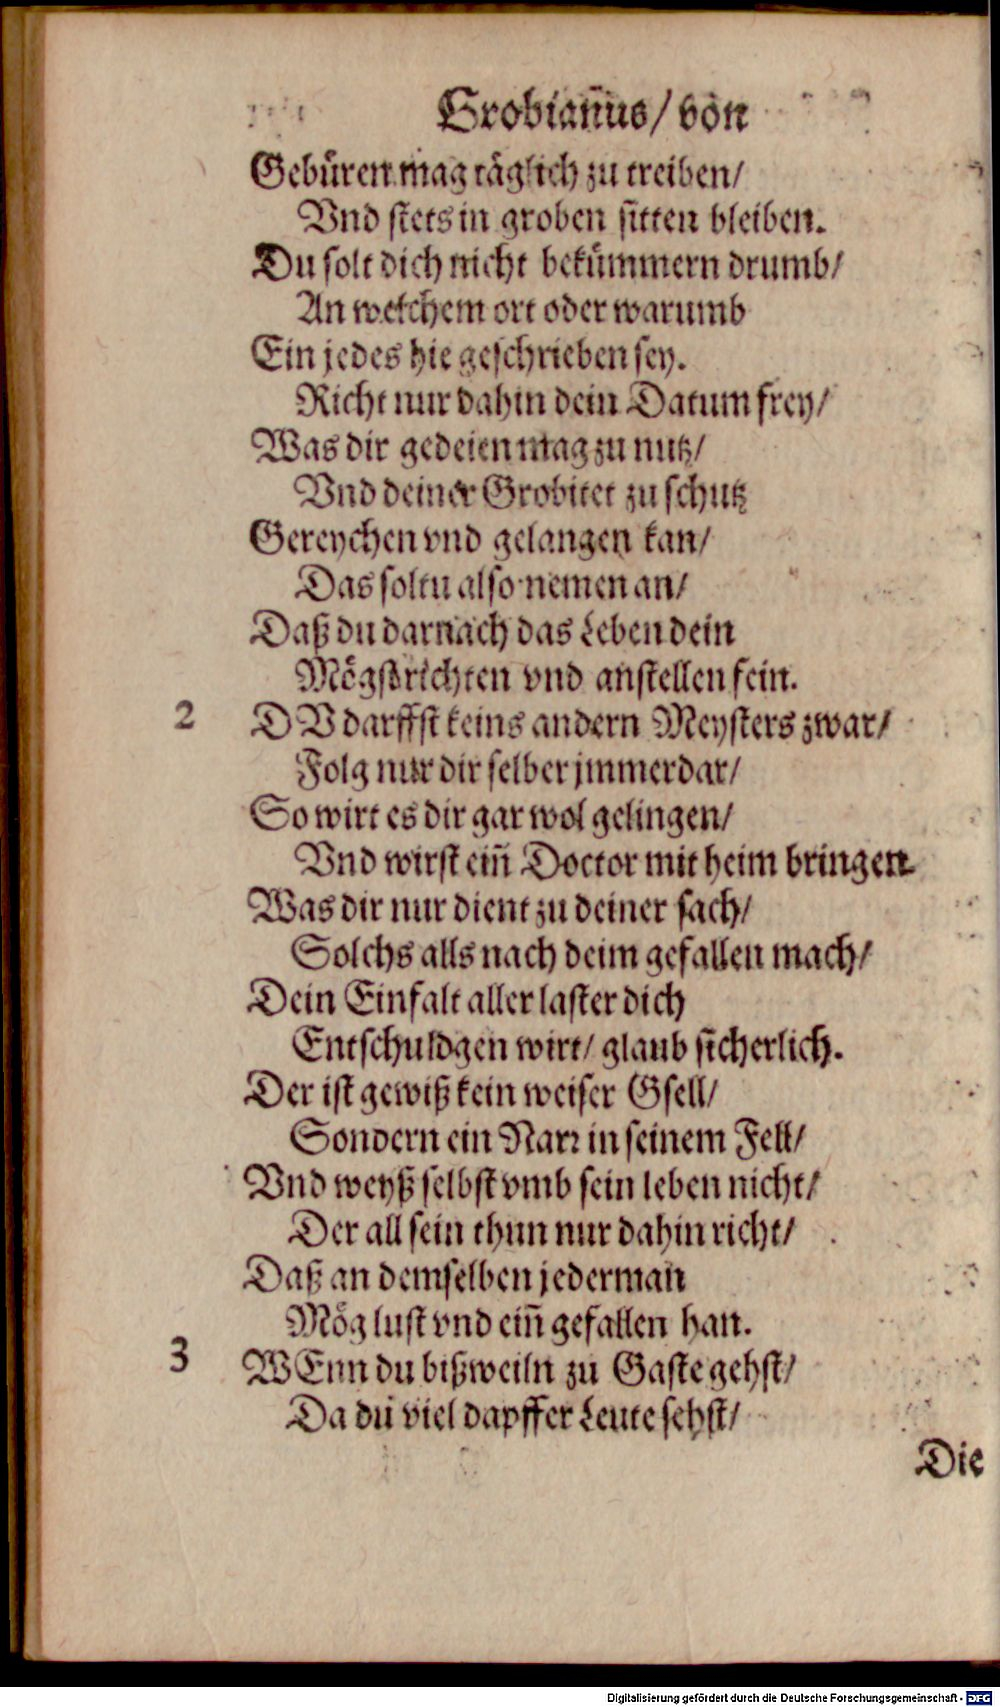 Grobianus/ von
Gebüren mag täglich zu treiben/
Vnd stets in groben sitten bleiben.
Du solt dich nicht bekümmern drumb/
An welchem ort oder warumb
Ein jedes hie geschrieben sey.
Richt nur dahin dein Datum frey/
Was dir gedeien mag zu nutz/
Vnd deiner Grobitet zu schutz
Gereychen vnd gelangen kan/
Das soltu also nemen an/
Daß du darnach das Leben dein
Mögst richten vnd anstellen fein.
2 DV darffst keins andern Meysters zwar/
Folg nur dir selber jmmerdar/
So wirt es dir gar wol gelingen/
Vnd wirst ein̄ Doctor mit heim bringen.
Was dir nur dient zu deiner sach/
Solchs alls nach deim gefallen mach/
Dein Einfalt aller laster dich
Entschuldgen wirt/ glaub sicherlich.
Der ist gewiß kein weiser Gsell/
Sondern ein Narr in seinem Fell/
Vnd weyß selbst vmb sein leben nicht/
Der all sein thun nur dahin richt/
Daß an demselben jederman
Mög lust vnd ein̄ gefallen han.
3 WEnn du bißweiln zu Gaste gehst/
Da du viel dapffer Leute sehst/
Die
Digitalisierung gefördert durch die Deutsche Forschungsgemeinschaft - DFG